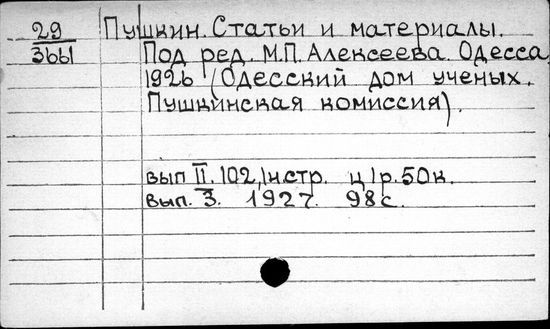 29 Пушкин. Статьи и материалы.
3661 Под ред. М.П. Алексеева. Одесса,
1926 (Одесский дом ученых.
Пушкинская комиссия).
вып II. 102, I нстр. ц 1р. 50к.
Вып. 3. 1927. 98 с.